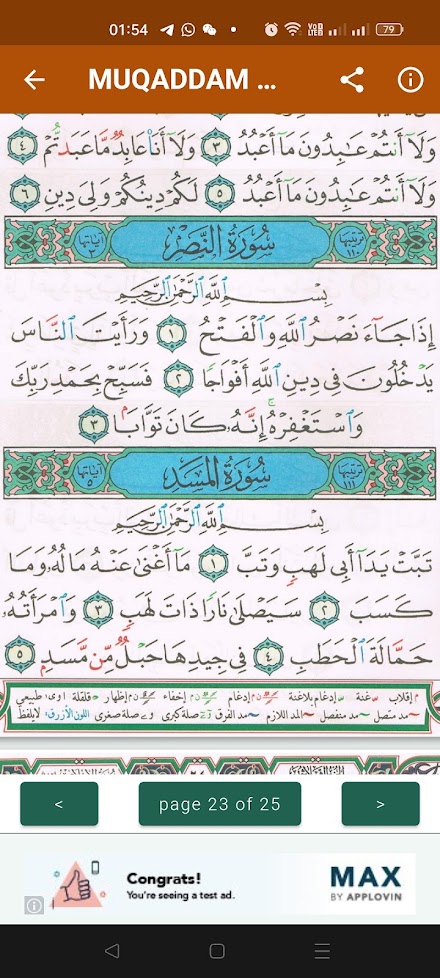 01:54
VoD
LTE2
79
MUQADDAM ...
وَلَآ أَنتُمْ عَـٰبِدُونَ مَآ أَعْبُدُ ٣ وَلَآ أَنَا۠ عَابِدٌ مَّا عَبَدتُّمْ ٤
وَلَآ أَنتُمْ عَـٰبِدُونَ مَآ أَعْبُدُ ٥ لَكُمْ دِينُكُمْ وَلِىَ دِينِ ٦
ترتيبها ١١٠ سُورَةُ النَّصْرِ آياتها ٣
بِسْمِ ٱللَّهِ ٱلرَّحْمَـٰنِ ٱلرَّحِيمِ
إِذَا جَآءَ نَصْرُ ٱللَّهِ وَٱلْفَتْحُ ١ وَرَأَيْتَ ٱلنَّاسَ
يَدْخُلُونَ فِى دِينِ ٱللَّهِ أَفْوَاجًا ٢ فَسَبِّحْ بِحَمْدِ رَبِّكَ
وَٱسْتَغْفِرْهُ إِنَّهُۥ كَانَ تَوَّابًۢا ٣
ترتيبها ١١١ سُورَةُ المَسَدِ آياتها ٥
بِسْمِ ٱللَّهِ ٱلرَّحْمَـٰنِ ٱلرَّحِيمِ
تَبَّتْ يَدَآ أَبِى لَهَبٍ وَتَبَّ ١ مَآ أَغْنَىٰ عَنْهُ مَالُهُۥ وَمَا
كَسَبَ ٢ سَيَصْلَىٰ نَارًا ذَاتَ لَهَبٍ ٣ وَٱمْرَأَتُهُۥ
حَمَّالَةَ ٱلْحَطَبِ ٤ فِى جِيدِهَا حَبْلٌ مِّن مَّسَدٍۭ ٥
م إقلاب غنة إدغام بلاغنة إدغام إخفاء إظهار قلقلة اوى: طبيعي
مد متصل مد منفصل المد اللازم مد الفرق صلة كبرى صلة صغرى اللون الأزرق: لا يلفظ
<
page 23 of 25
>
Congrats!
You're seeing a test ad.
MAX
BY APPLOVIN